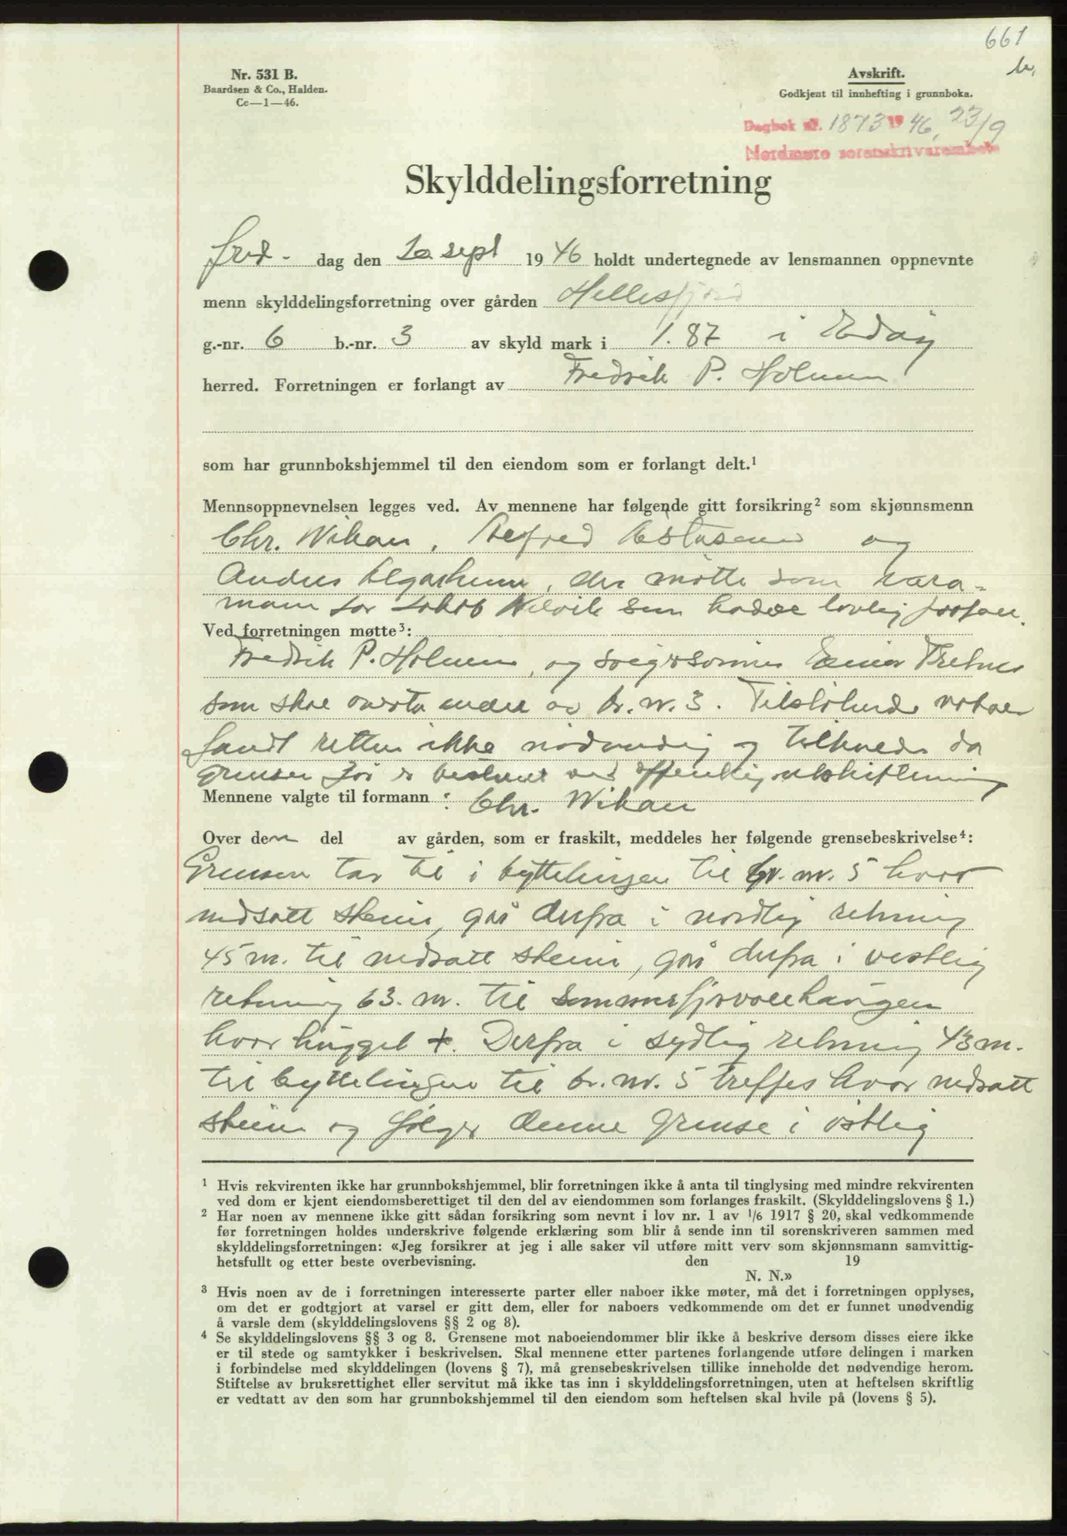 661
b,
Nr. 531 B.
Baardsen & Co., Halden.
Cc—1—46.
Avskrift.
Godkjent til innhefting i grunnboka.
Dagbok nr. 1873 1946, 23/9
Nordmøre sorenskriverembete
Skylddelingsforretning
fred- dag den 20 sept 1946 holdt undertegnede av lensmannen oppnevnte
menn skylddelingsforretning over gården Hellesfjord
g.-nr. 6 b.-nr. 3 av skyld mark i 1.87 i Edøy
herred. Forretningen er forlangt av Fredrik P. Holmen
som har grunnbokshjemmel til den eiendom som er forlangt delt.¹
Mennsoppnevnelsen legges ved. Av mennene har følgende gitt forsikring² som skjønnsmenn
Chr. Wikan, Alfred og
Anders , der møtte som vara-
mann for Jakob som hadde lovlig forfall.
Ved forretningen møtte³:
Fredrik P. Holmen, og svigersønnen Einar
som skal overta andel av br. nr. 3. Tilstøtende naboer
fandt retten ikke nødvendig og tilkalle da
grensen før er bestemt ved offentlig utskiftning
Mennene valgte til formann: Chr. Wikan
Over den del av gården, som er fraskilt, meddeles her følgende grensebeskrivelse⁴:
Grensen tar til i byttelinjen til br. nr. 5 hvor
nedsatt stein, går derfra i nordlig retning
45 m. til nedsatt stein, går derfra i vestlig
retning 63. m. til
hvor hugget +. Derfra i sydlig retning 43 m.
til byttelinjen til br. nr. 5 treffes hvor nedsatt
stein og følger denne grense i østlig
¹ Hvis rekvirenten ikke har grunnbokshjemmel, blir forretningen ikke å anta til tinglysing med mindre rekvirenten
ved dom er kjent eiendomsberettiget til den del av eiendommen som forlanges fraskilt. (Skylddelingslovens § 1.)
² Har noen av mennene ikke gitt sådan forsikring som nevnt i lov nr. 1 av 1/6 1917 § 20, skal vedkommende
før forretningen holdes underskrive følgende erklæring som blir å sende inn til sorenskriveren sammen med
skylddelingsforretningen: «Jeg forsikrer at jeg i alle saker vil utføre mitt verv som skjønnsmann samvittig-
hetsfullt og etter beste overbevisning. den 19
N. N.»
³ Hvis noen av de i forretningen interesserte parter eller naboer ikke møter, må det i forretningen opplyses,
om det er godtgjort at varsel er gitt dem, eller for naboers vedkommende om det er funnet unødvendig
å varsle dem (skylddelingslovens §§ 2 og 8).
⁴ Se skylddelingslovens §§ 3 og 8. Grensene mot naboeiendommer blir ikke å beskrive dersom disses eiere ikke
er til stede og samtykker i beskrivelsen. Skal mennene etter partenes forlangende utføre delingen i marken
i forbindelse med skylddelingen (lovens § 7), må grensebeskrivelsen tillike inneholde det nødvendige herom.
Stiftelse av bruksrettighet eller servitut må ikke tas inn i skylddelingsforretningen, uten at heftelsen skriftlig
er vedtatt av den som har grunnbokshjemmel til den eiendom som heftelsen skal hvile på (lovens § 5).